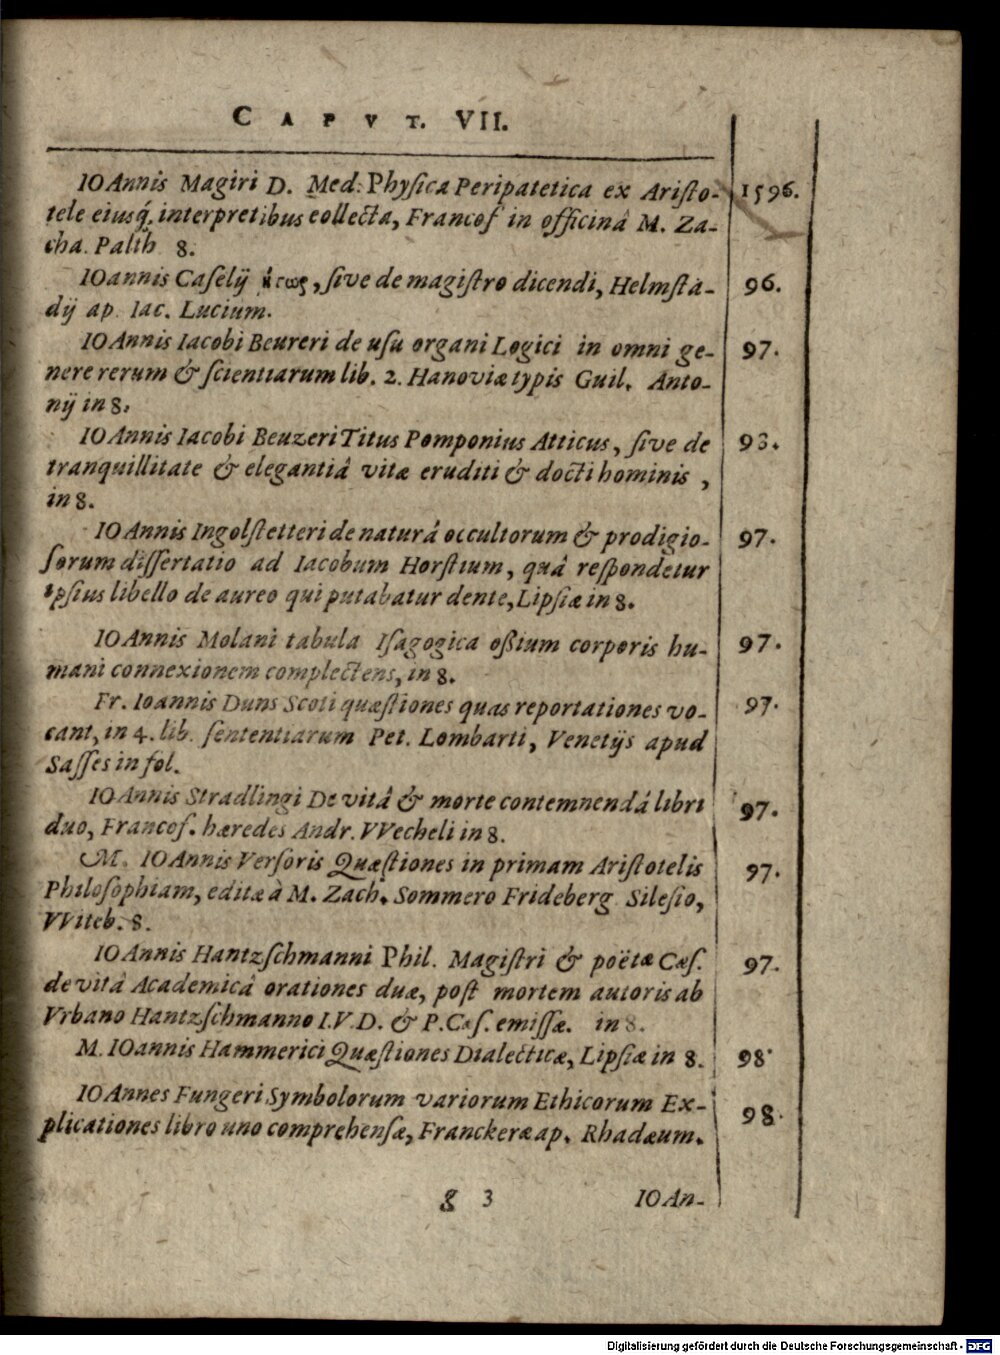 CAPVT. VII.
IOAnnis Magiri D. Med. Physica Peripatetica ex Aristo- 1596.
tele eiusq́; interpretibus collecta, Francof in officinâ M. Za-
cha. Palth 8.
IOannis Caselij sive de magistro dicendi, Helmstà- 96.
dij ap. Iac. Lucium.
IOAnnis Iacobi Beureri de usu organi Logici in omni ge- 97.
nere rerum & scientiarum lib. 2. Hanoviæ typis Guil. Anto-
nij in 8.
IOAnnis Iacobi Beuzeri Titus Pomponius Atticus, sive de 93.
tranquillitate & elegantiâ vitæ eruditi & docti hominis,
in 8.
IOAnnis Ingolstetteri de naturâ occultorum & prodigio- 97.
sorum dissertatio ad Iacobum Horstium, quâ respondetur
ipsius libello de aureo qui putabatur dente, Lipsiæ in 8.
IOAnnis Molani tabula Isagogica oßium corporis hu- 97.
mani connexionem complectens, in 8.
Fr. Ioannis Duns Scoti quæstiones quas reportationes vo- 97.
cant, in 4. lib. sententiarum Pet. Lombarti, Venetijs apud
Sasses in fol.
IOAnnis Stradlingi De vitâ & morte contemnendâ libri 97.
duo, Francof. hæredes Andr. VVecheli in 8.
M. IOAnnis Versoris Quæstiones in primam Aristotelis 97.
Philosophiam, editæ à M. Zach. Sommero Frideberg Silesio,
VViteb. 8.
IOAnnis Hantzschmanni Phil. Magistri & poëtæ Cæs. 97.
de vitâ Academicâ orationes duæ, post mortem autoris ab
Vrbano Hantzschmanno I.V.D. & P. Cæs. emissæ. in 8.
M. IOannis Hammerici Quæstiones Dialecticæ, Lipsiæ in 8. 98.
IOAnnes Fungeri Symbolorum variorum Ethicorum Ex- 98.
plicationes libro uno comprehensæ, Franckeræ ap. Rhadæum.
g 3 IOAn-
Digitalisierung gefördert durch die Deutsche Forschungsgemeinschaft - DFG